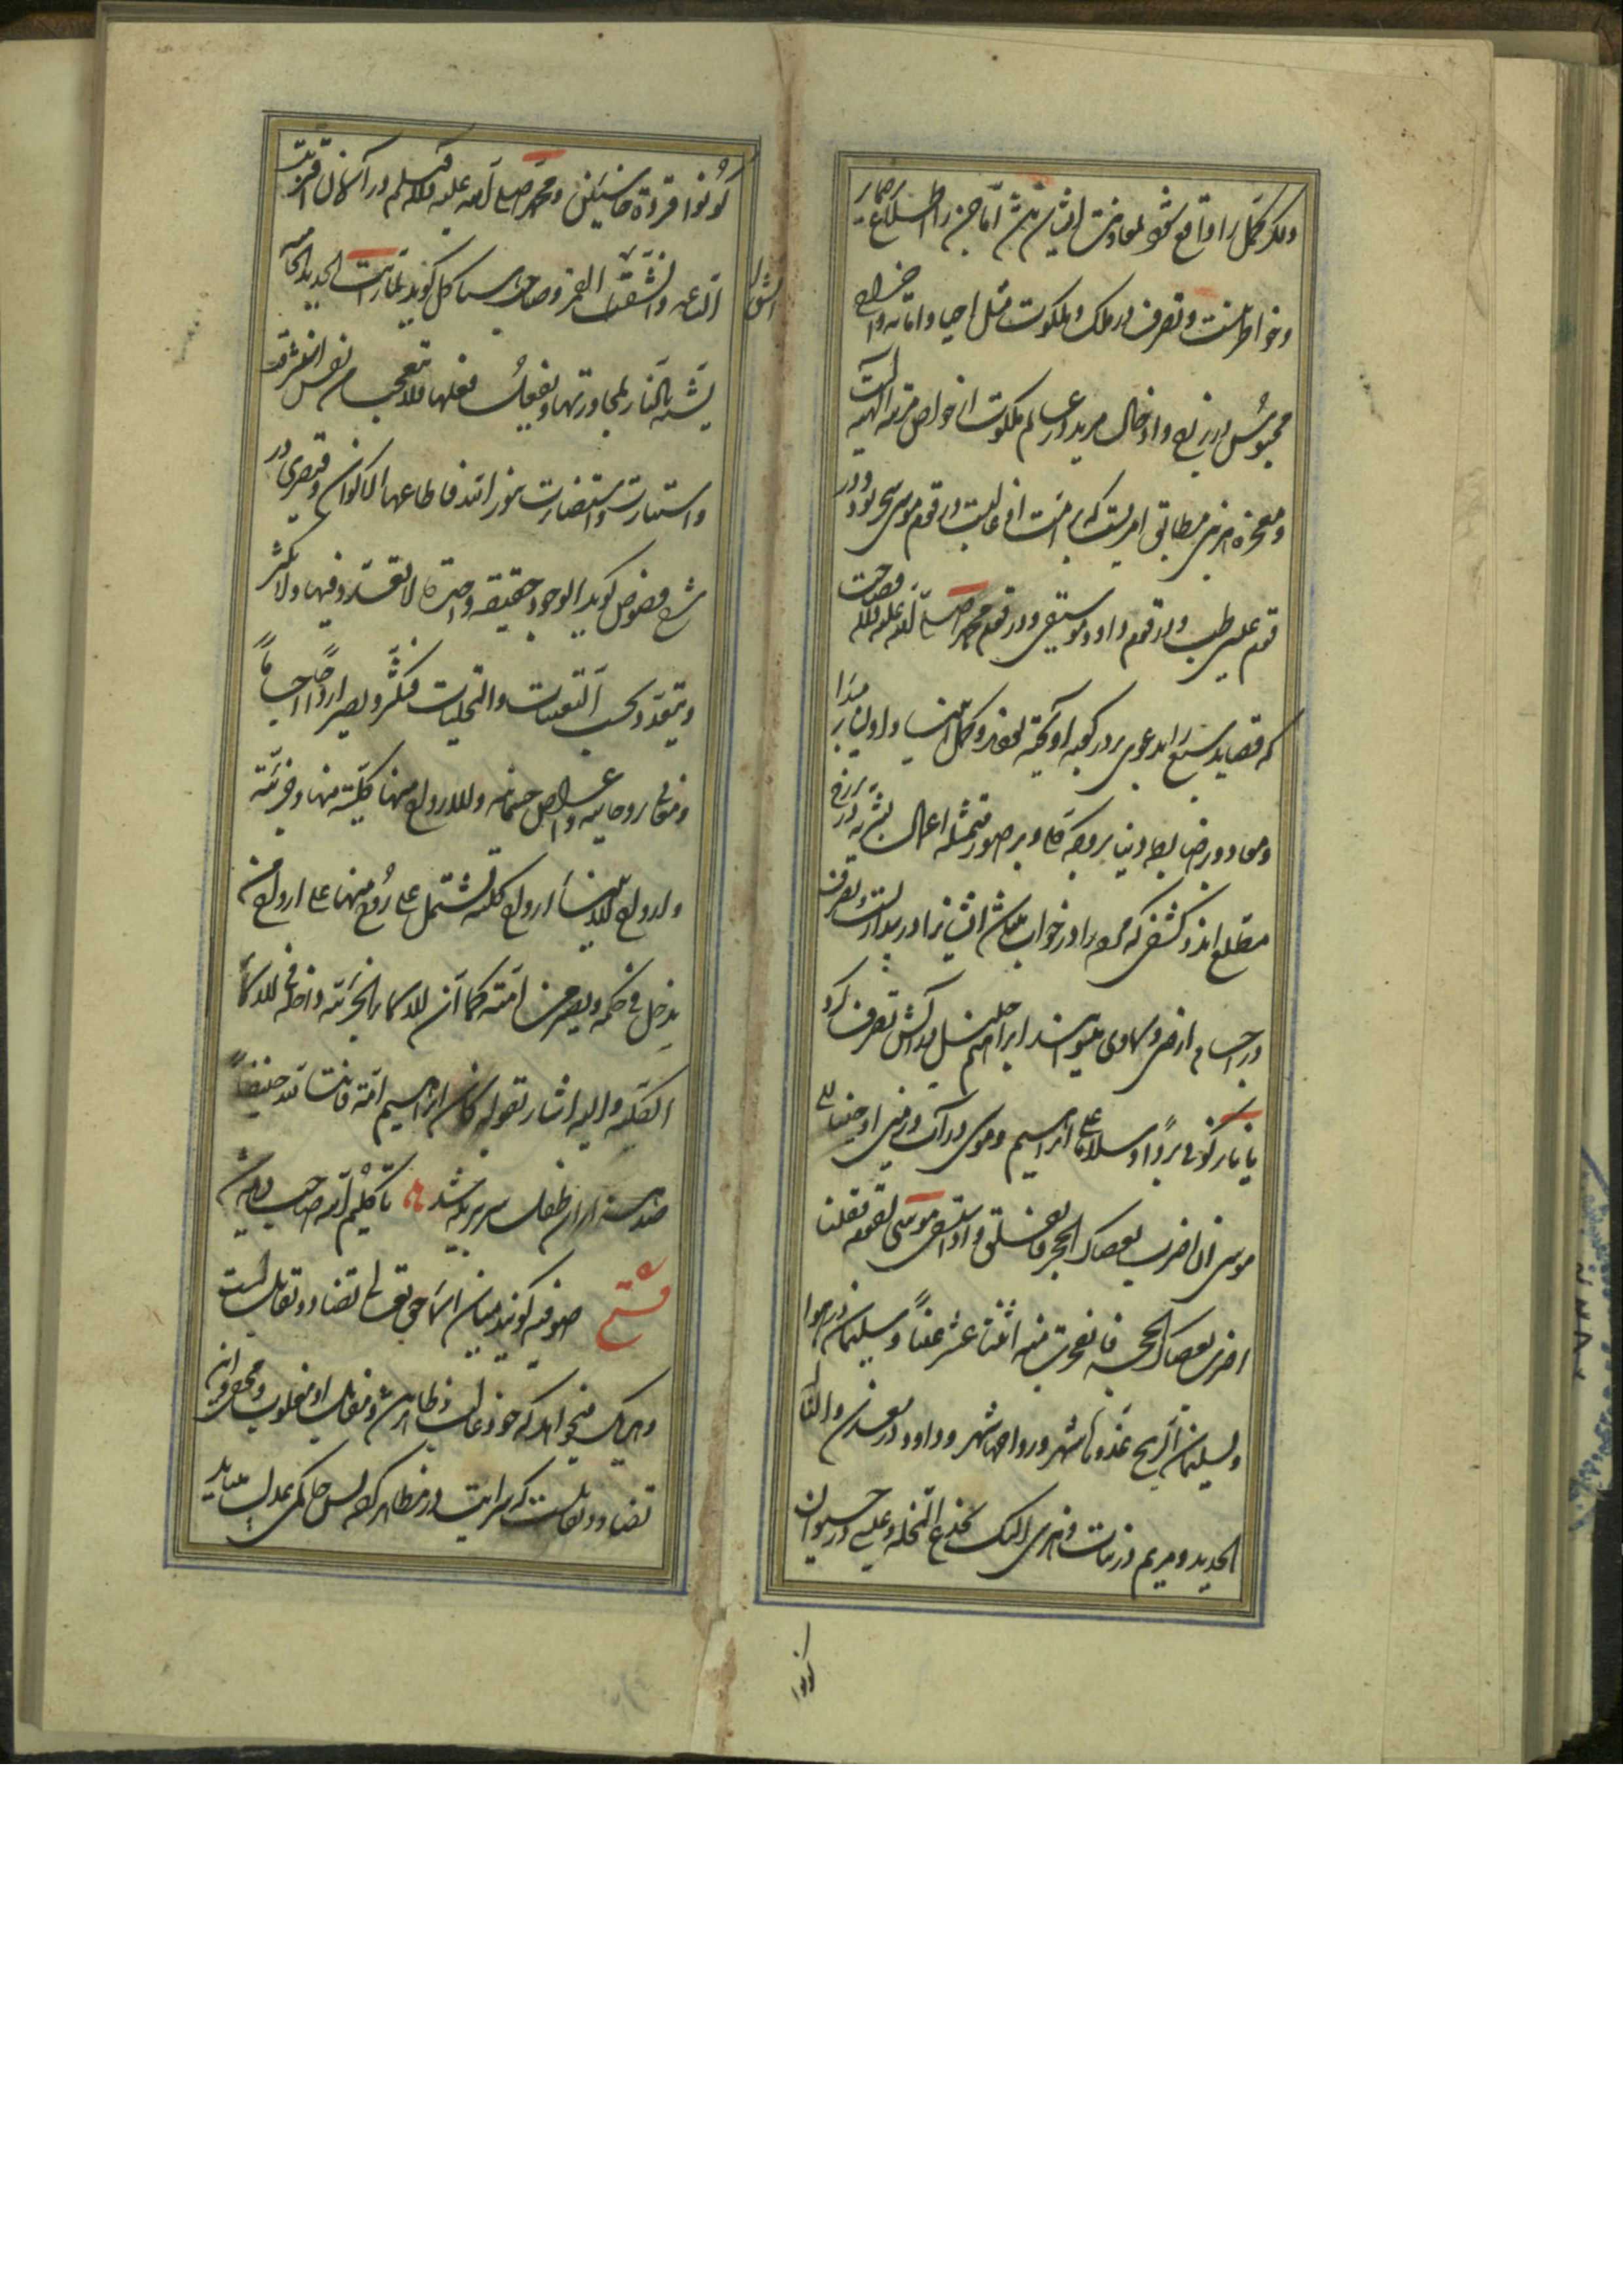 و مکر کمل را واقع شود بمعاونت ایشان باشد اما جن را اطلاع بر ضمایر
و خواطر نیست و تصرف در ملک و ملکوت مثل احیا و اماته و اخراج
محبوس برزخ و ادخال مرید در عالم ملکوت از خواص مرتبه الهیه است
و معجزه هر نبی مطابق امریست که بر امت او غالبست در قوم موسی سحر بود و در
قوم عیسی طب و در قوم داود موسیقی و در قوم محمد صلی الله علیه و آله فصاحت
که قصاید سبع را بدعوی بر در کعبه آویخته بودند و کمل انبیا و اولیا بر مبدا
و معاد و رضا
مطلع اند و کشفی که مردم را در خواب باشد ایشانرا در بیداریست و تصرف
در اجسام ارضی و سماوی میتوانند ابراهیم خلیل در آتش تصرف کرد
یا نار کونی بردا و سلاما علی ابراهیم و موسی در آب و زمین اوحینا الی
موسی ان اضرب بعصاک البحر فانفلق و اذ استسقی موسی لقومه فقلنا
اضرب بعصاک الحجر فانفجرت منه اثنتا عشر عینا و سلیمان در هوا
و لسلیمان الریح غدوها شهر و رواحها شهر و داود در معدن و النا
الحدید و مریم در نبات و هزی الیک بجذع النخلة و عیسی در حیوان
کونوا
کونوا قردة خاسئین و محمد صلی الله علیه و آله و سلم در آسمان اقتربت
الساعه و انشق القمر و صاحب هیاکل گوید لما رأیت الحدیدة الحامیه
یتشبه بالنار لمجاورتها و یفعل فعلها فلا تتعجب من نفس اشرقت
و استنارت و استضاءت بنور الله فاطاعها الاکوان و قیصری در
شرح فصوص گوید الوجود حقیقة واحدة لا تعدد فیها و لا تکثر
و یتعدد بحسب التعینات و التجلیات فتکثر و یصیر ارواحا و اجساما
و معانی روحانیه و اعراض جسمانیه و للارواح منها کلیة منها و جزئیة
و ارواح الانبیاء ارواح کلیة یشتمل کل روح منها علی ارواح من
یدخل فی حکمه و یصیر من امته کما ان الاسماء الجزئیة داخلة فی الاسماء
الکلیة و الیه اشار بقوله کان ابراهیم امة قانتا لله حنیفا
صد هزاران طفل سر ببریده شد تا کلیم الله صاحب دیده شد
فتح صوفیه گویند میان اسماء حق تعالی تضاد و تقابلست
و هر یک میخواهد که خود غالب و ظاهر باشد و مقابل او مغلوب و مخفی و این
تضاد و تقابلست که سرایت در مظاهر کرده پس حاکمی عدل میباید